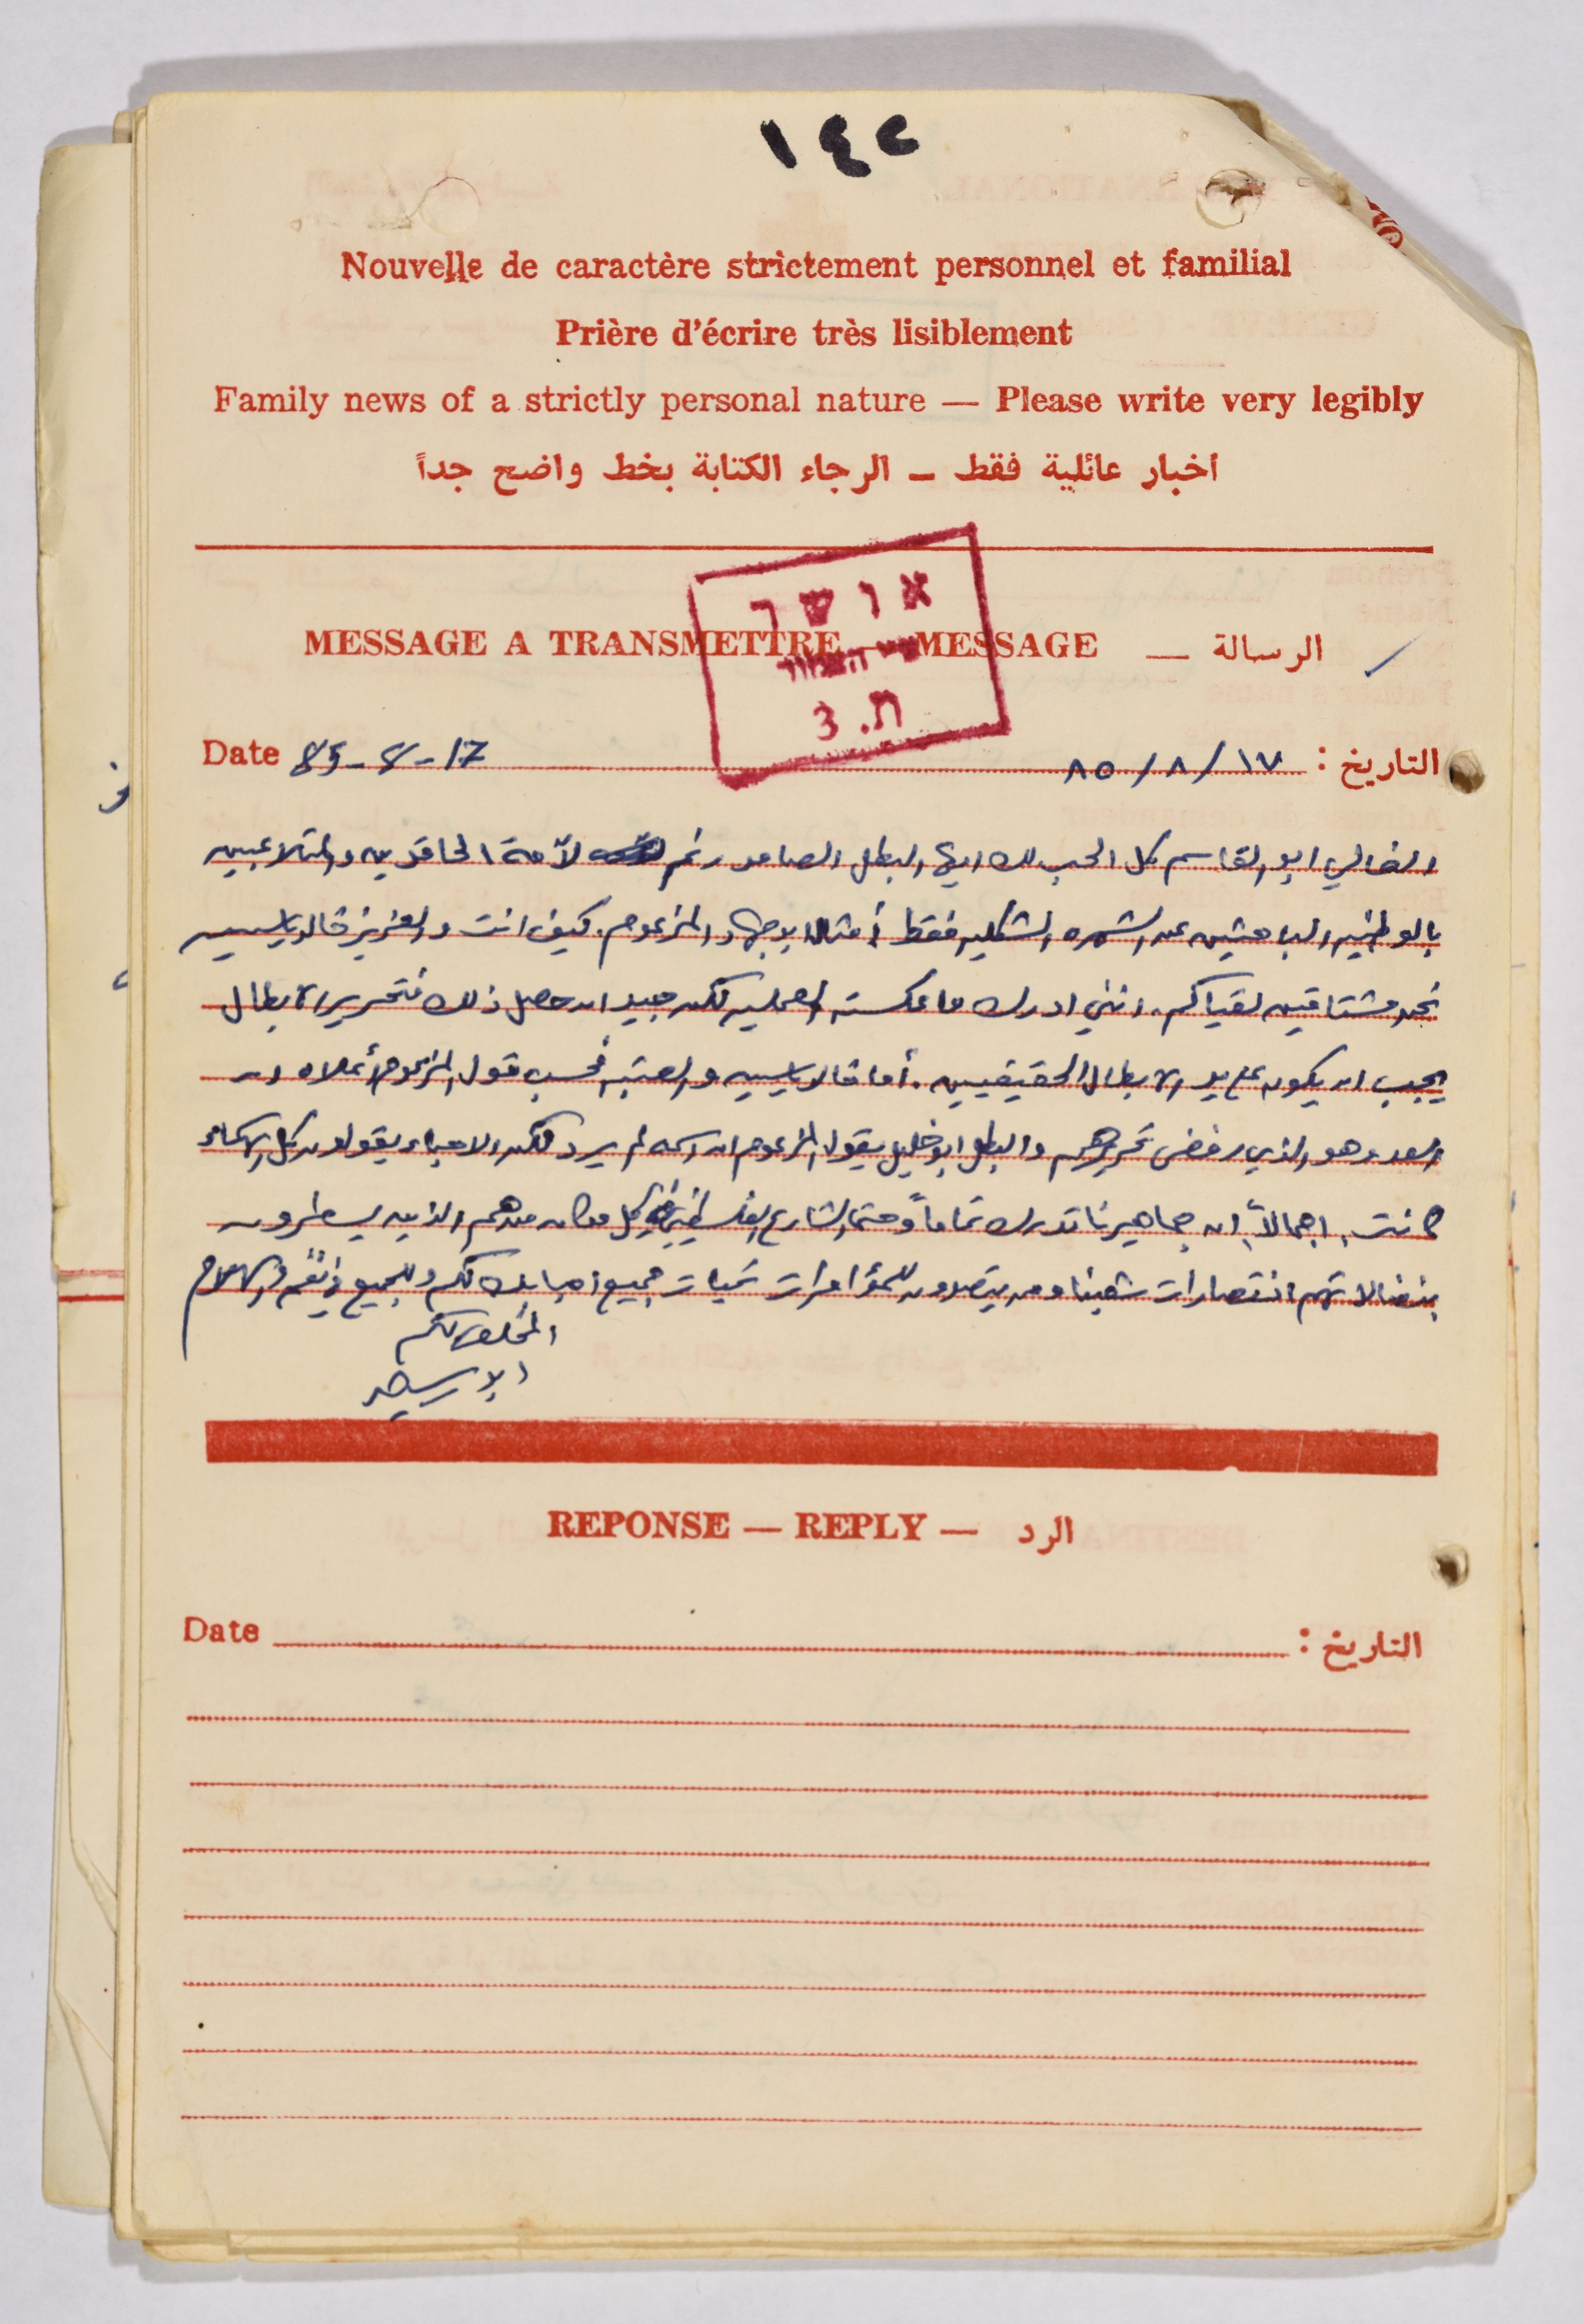 ١٤٢
Nouvelle de caractère strictement personnel et familial
Prière d'écrire très lisiblement
Family news of a strictly personal nature — Please write very legibly
اخبار عائلية فقط – الرجاء الكتابة بخط واضح جداً
אושר
ת.3
MESSAGE A TRANSMETTRE — MESSAGE — الرسالة
Date 85-8-17 التاريخ : ١٧/٨/٨٥
الغالي ابو القاسم كل الحب لك ايها البطل الصامد رغم الحاقدين والمتلاعبين
بالوطنيه الباحثين عن الشهره الشكليه فقط أمثال ابو جهاد المزعوم. كيف انت والعزيز خالد ياسين
نحن مشتاقين لقياكم. انني ادرك ما عكسته العمليه لكن جيد ان حصل ذلك فتحرير الابطال
يجب ان يكون على يد الابطال الحقيقيين. أما خالد ياسين فحسب قول المزعوم أعلاه ان
العدو هو الذي رفض تحريرهم والبطل ابو خليل يقول المزعوم ان اسمه لم يرد لكن الاحباء يقولون كل الاسماء
كانت. اجمالاً، ان جماهيرنا تدرك تماماً وحتى الشارع الفلسطيني في كل مكان من هم الذين يسطرون
بنضالاتهم انتصارات شعبنا ومن يتصدون للمؤامرات تحيات جميع احبائك لكم وللجميع
المخلص لكم
REPONSE — REPLY — الرد
Date التاريخ :